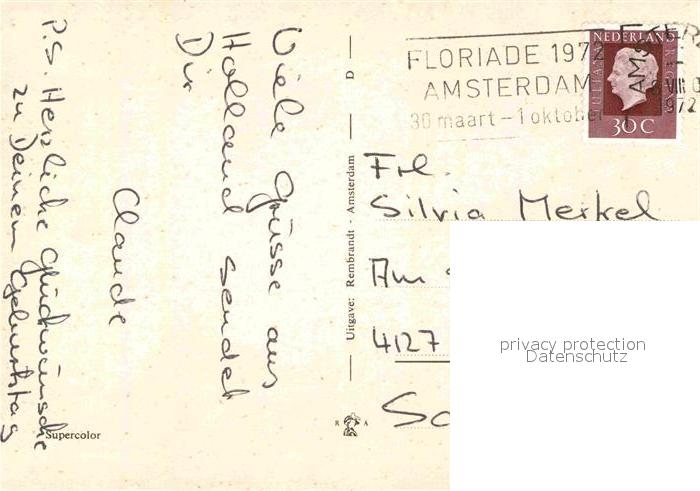 Viele Grüsse aus
Holland sendet
Dir
Claude
P.S. Herzliche Glückwünsche
zu Deinem Geburtstag
Supercolor
D
Uitgave: Rembrandt - Amsterdam
R A
FLORIADE 1972
AMSTERDAM
30 maart - 1 oktober
AMSTER
VIII
1972
NEDERLAND
JULIANA REGINA
30 C
Frl.
Silvia Merkel
Am
4127
privacy protection
Datenschutz